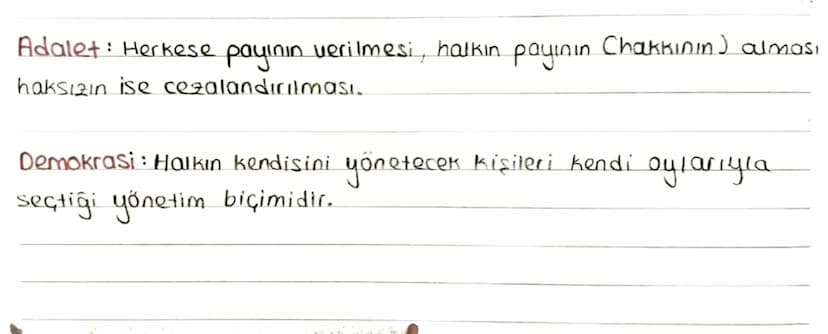 Adalet: Herkese payının verilmesi, halkın payının (hakkının) alması
haksızın ise cezalandırılması.
Demokrasi: Halkın kendisini yönetecek kişileri kendi oylarıyla
seçtiği yönetim biçimidir.